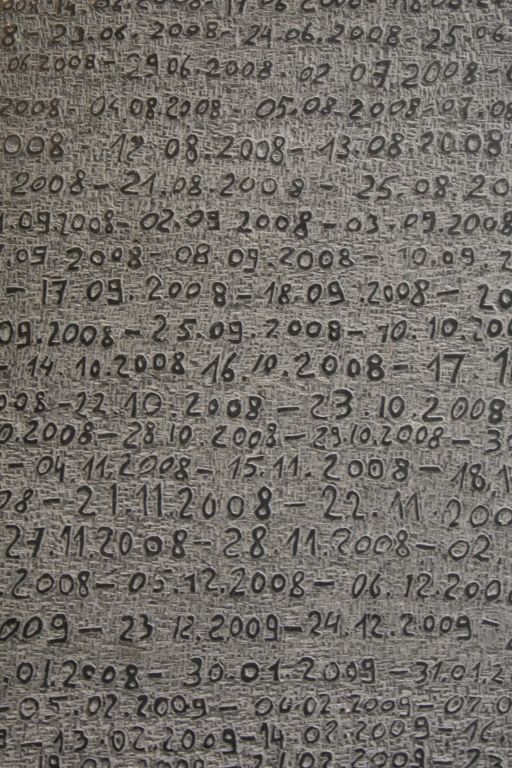 14.02.2008-17.06.2008-18.06.20
8-23.06.2008-24.06.2008-25.06
06.2008-29.06.2008.02 07.2008-
2008-04 08.2008-05.08.2008-07.08
008 12 08.2008-13.08.2008
2008-21.08.2008-25.08 20
.09.2008-02.09 2008-03.09.2008
.09 2008-08.09.2008-10.09.2
-17.09.2008-18.09.2008-20
09.2008-25.09.2008-10.10.200
-14.10.2008 16.10.2008-17.1
008-22.10.2008-23.10.2008
0.2008-28.10.2008-29.10.2008-3
-04.11.2008-15.11.2008-18.1
08-21.11.2008-22.11.200
27.11.2008-28.11.2008-02
2008-05.12.2008-06.12.200
009-23 12.2009-24.12.2009-
.01.2008-30.01.2009-31.01.2
-05.02.2009-06.02.2009-07.0
-13.02.2009-14.02.2009-16.
2009-23